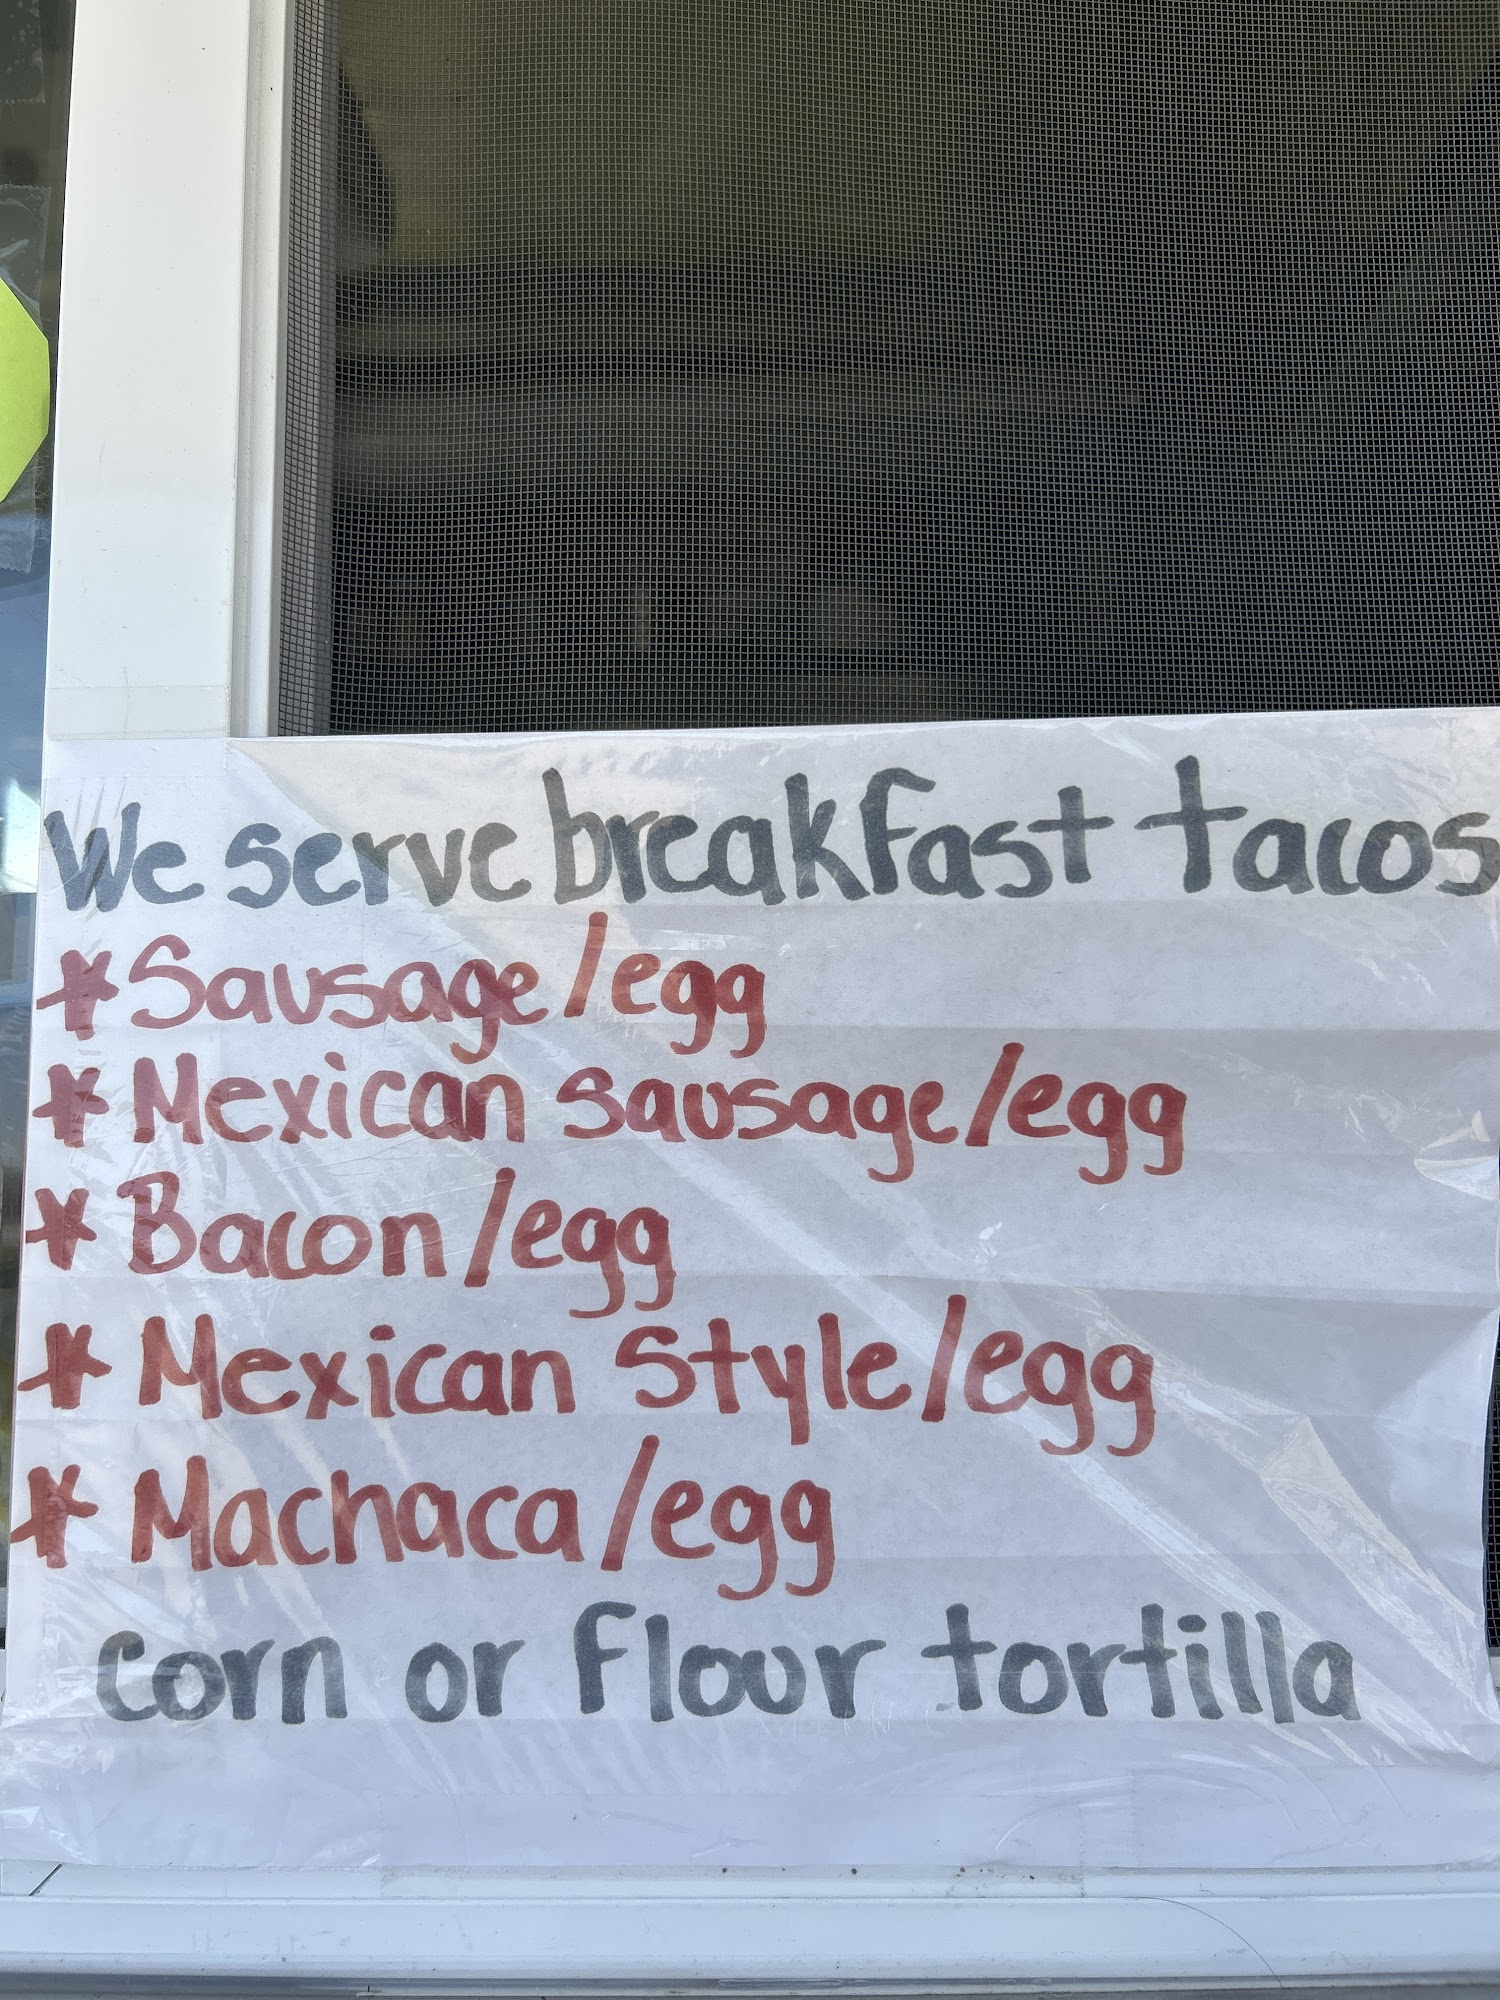 We serve breakfast tacos
* Sausage/egg
* Mexican sausage/egg
* Bacon/egg
* Mexican style/egg
* Machaca/egg
corn or flour tortilla